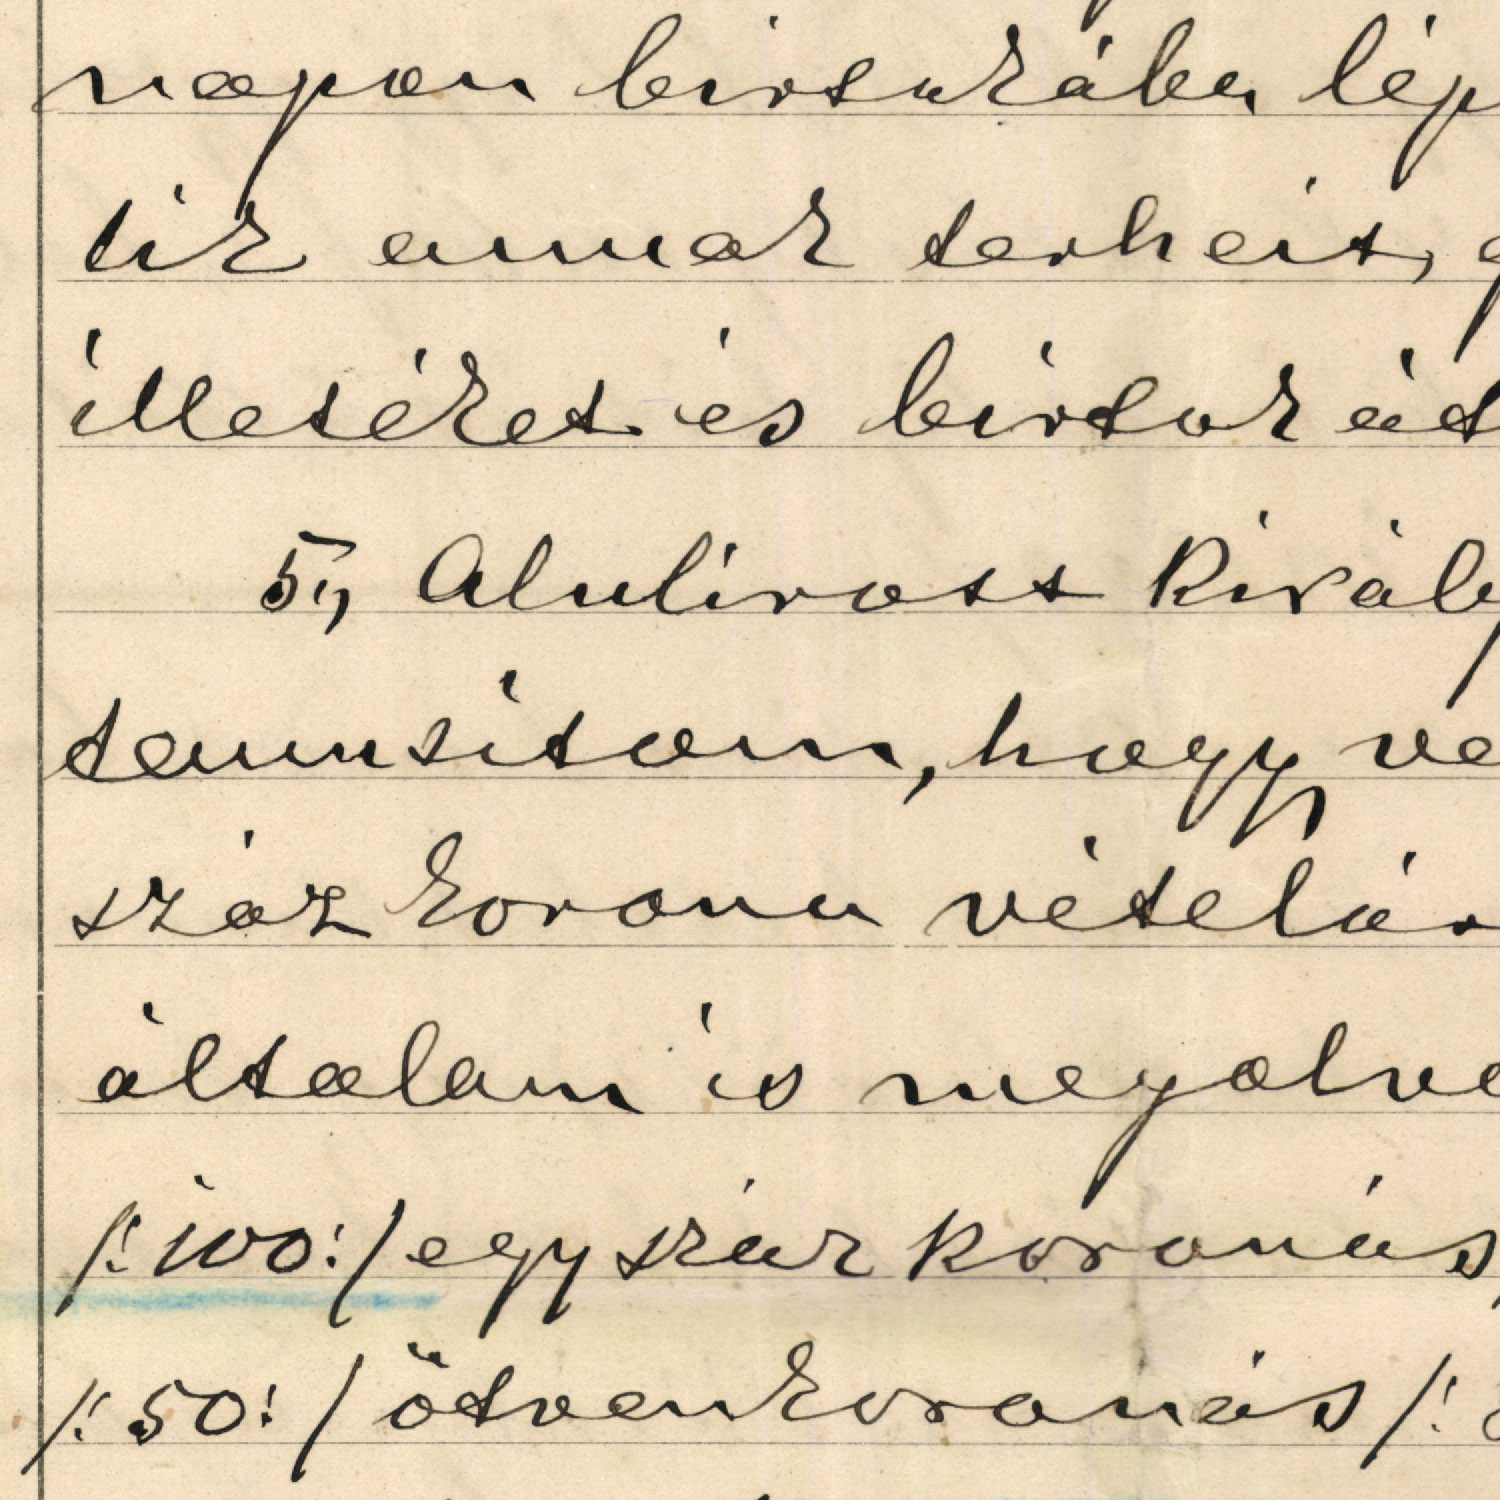 napon birtokába lép
tik annak terheit,
illetéket és birtok át
5., Alulirott Király
tanusitom, hogy ve
száz korona vételár
általam is megolva
/: 100 :/ egyszáz koronás,
/: 50 :/ ötvenkoronás /: